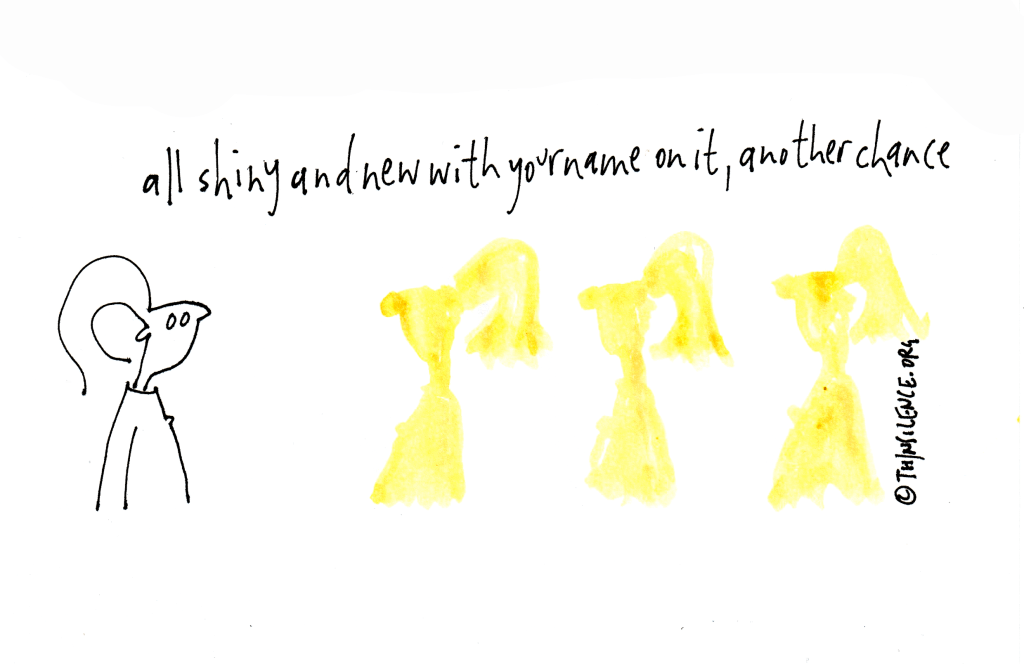 all shiny and new with your name on it, another chance
©THINSILENCE.ORG